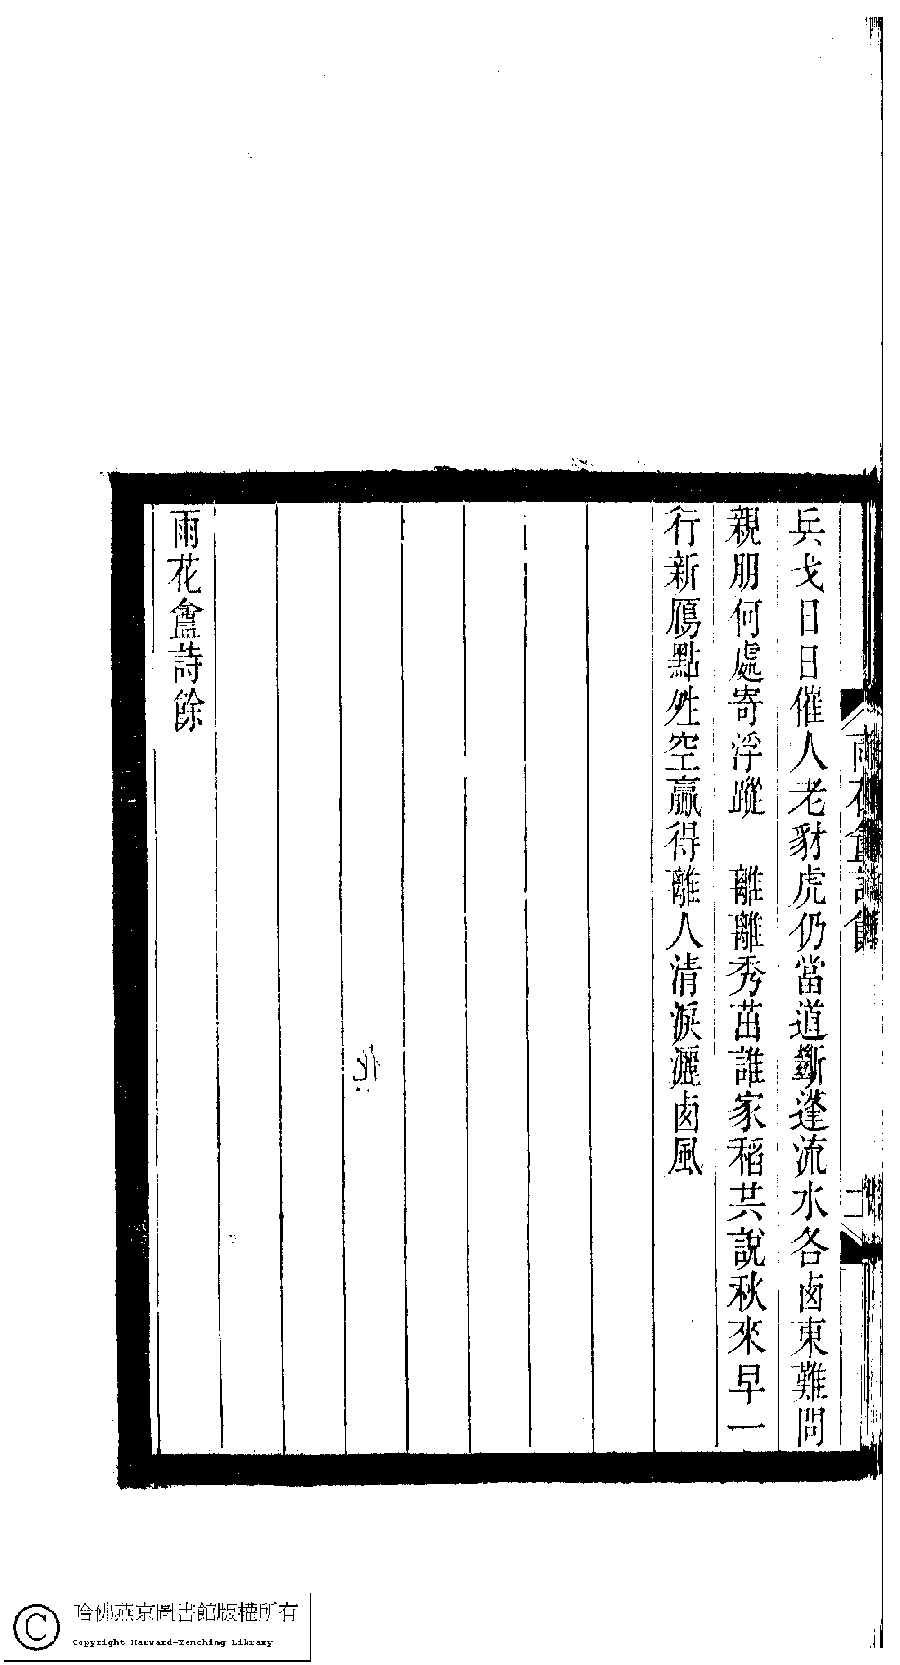 兵戈日日催人老豺虎仍當道斷蓬流水各卤東難問
親朋何處寄浮蹤　離離秀苗誰家稻共說秋來早一
行新鴈點空贏得離人清淚灑卤風
雨花盦詩餘
雨花盦詩餘
哈佛燕京圖書館版權所有
Copyright Harvard-Yenching Library